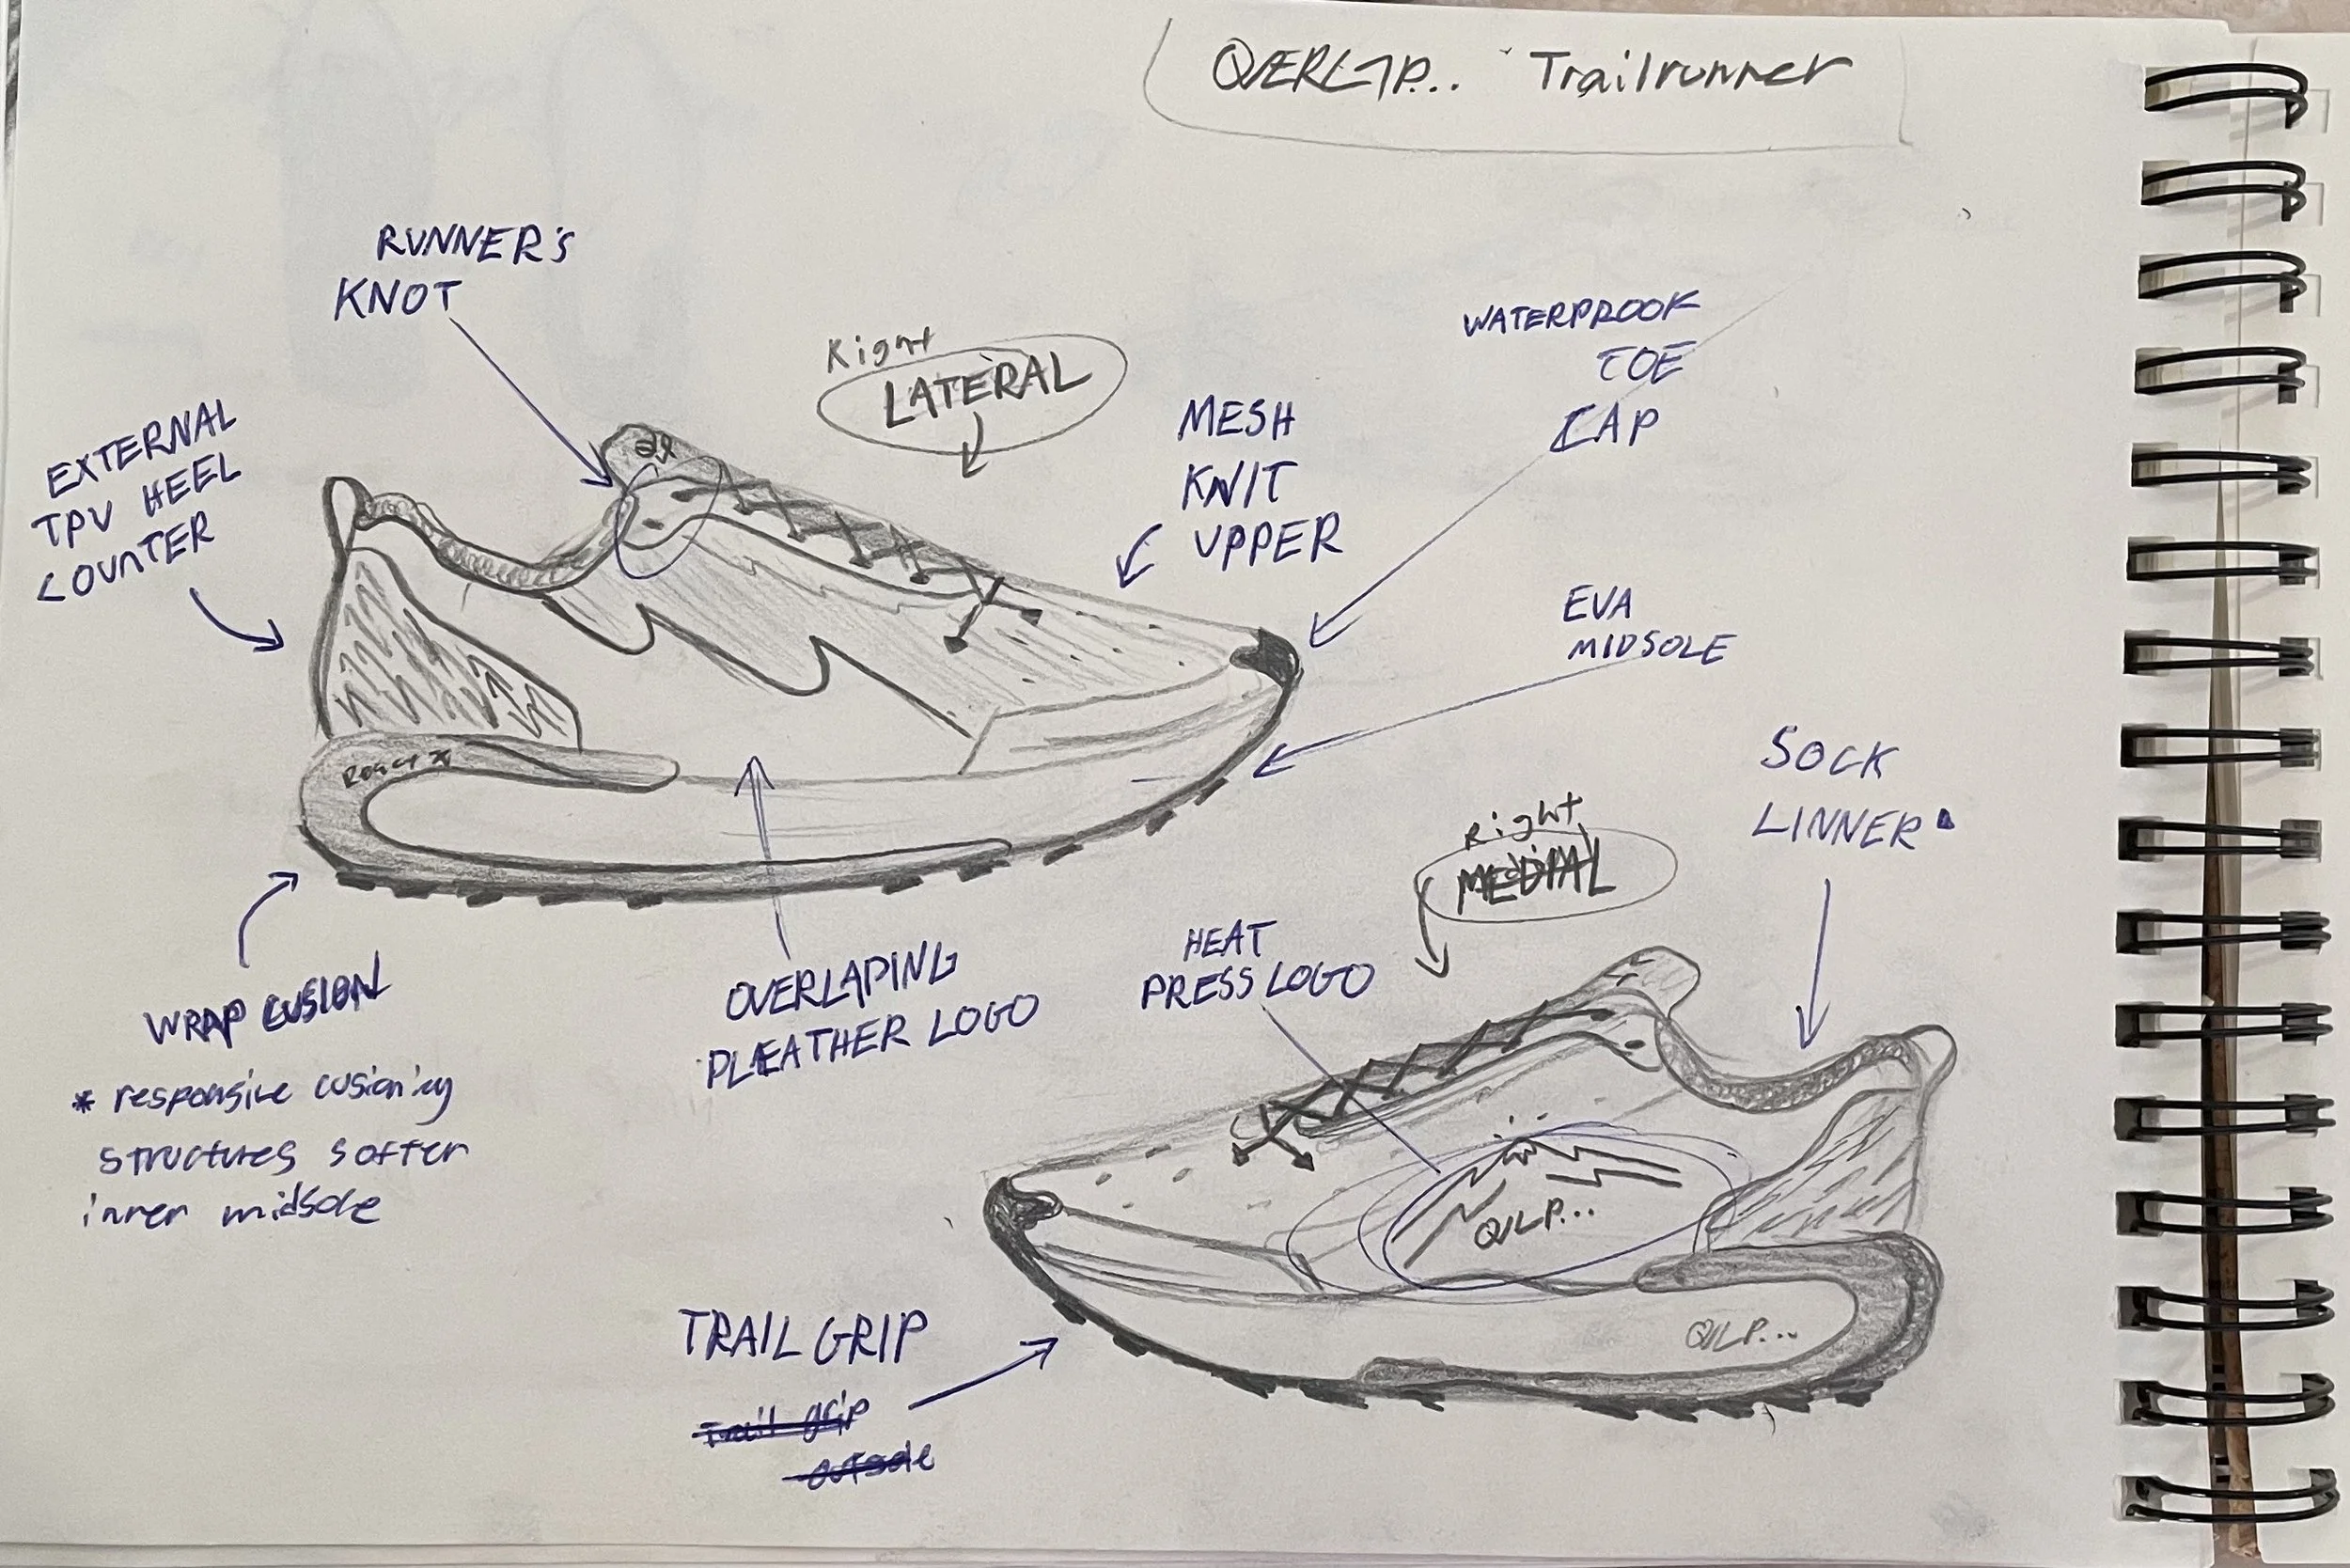 OVERLAP... Trailrunner
RUNNER'S
KNOT
Right
LATERAL
WATERPROOF
TOE
CAP
MESH
KNIT
UPPER
EXTERNAL
TPU HEEL
COUNTER
EVA
MIDSOLE
SOCK
LINNER
Right
MEDIAL
HEAT
PRESS LOGO
WRAP CUSION
* responsive cusioning
structures softer
inner midsole
OVERLAPING
PLEATHER LOGO
TRAIL GRIP
Trail grip
outsole